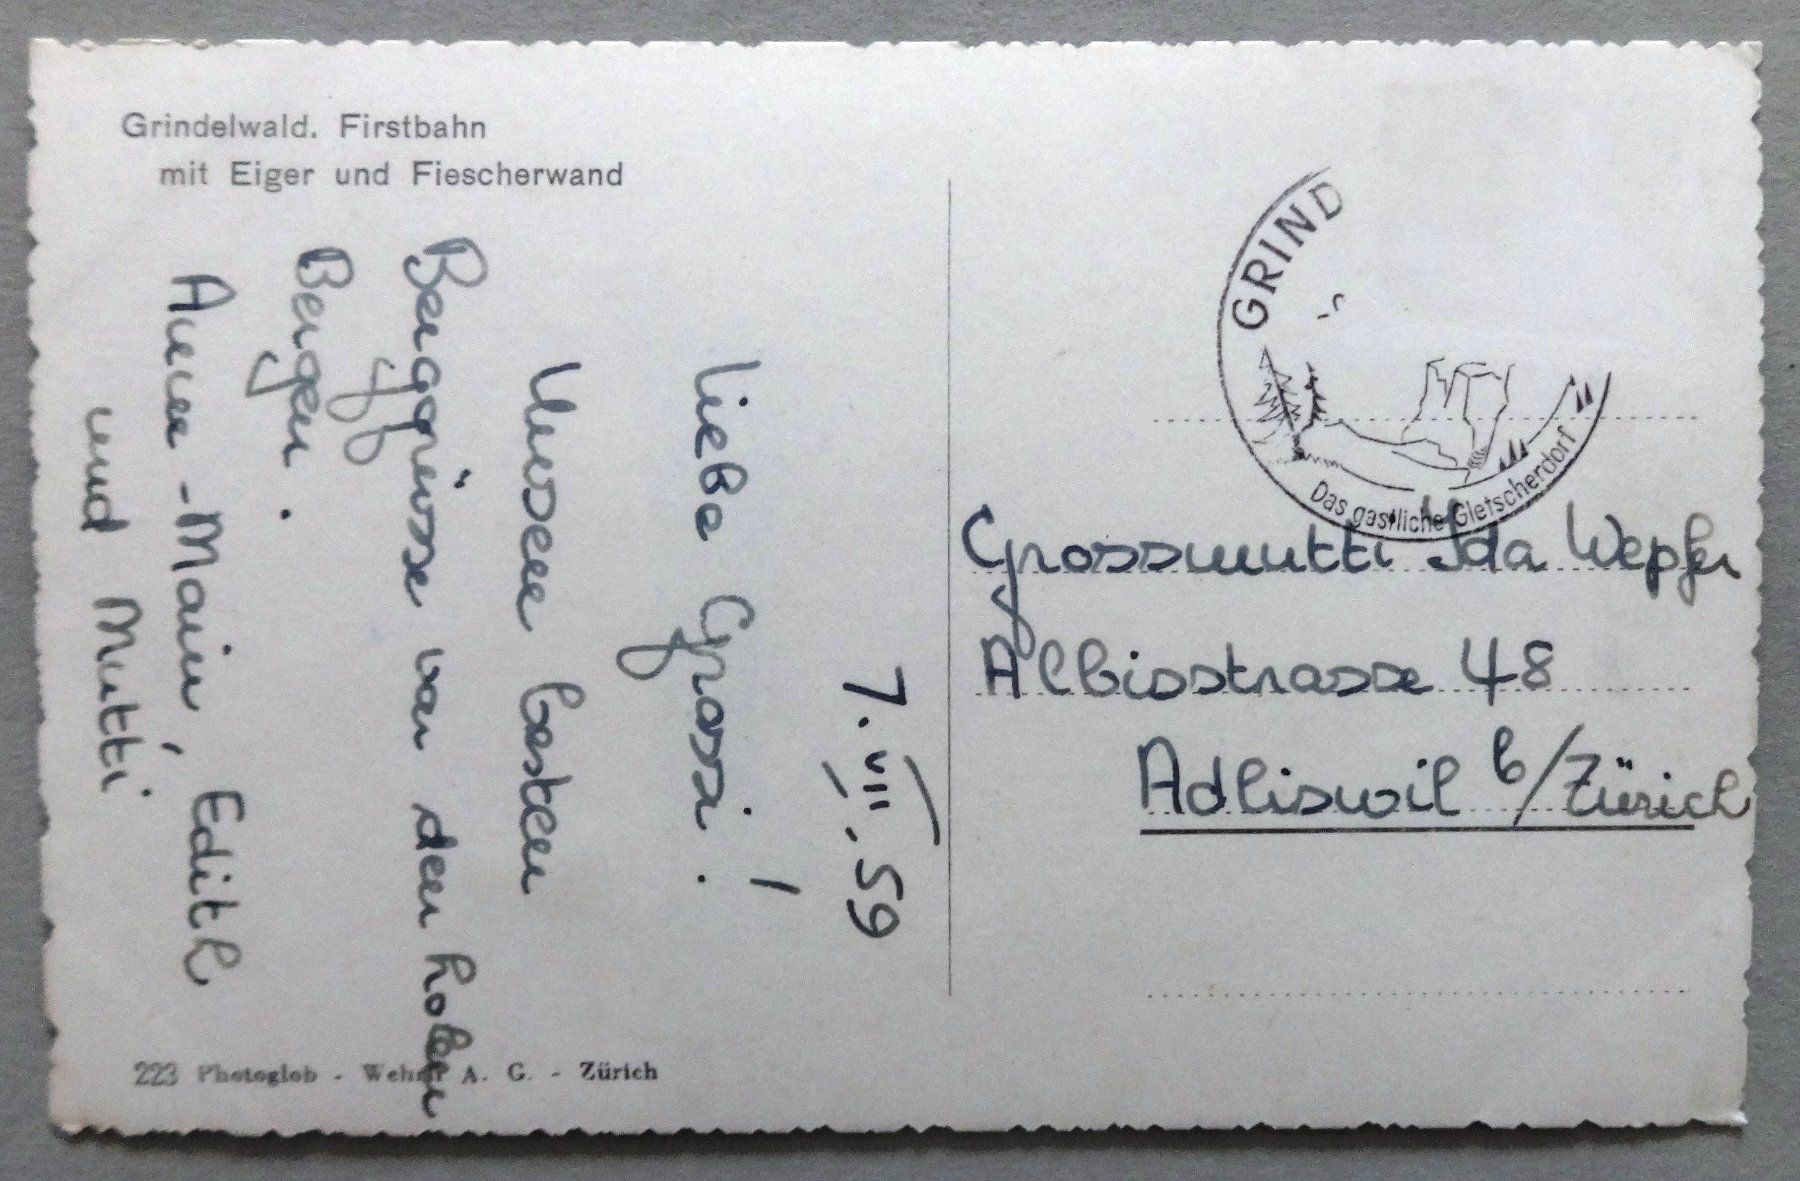 Grindelwald. Firstbahn
mit Eiger und Fiescherwand
7.VII.59
Liebe Grossi!
Unsere besten
Berggrüsse von den hohen
Bergen.
Anne-Marie, Edith
und Mutti
223 Photoglob - Wehrli A. G. - Zürich
GRIND
Das gastliche Gletscherdorf
Grossmutti Ida Wepfer
Albisstrasse 48
Adliswil b/Zürich